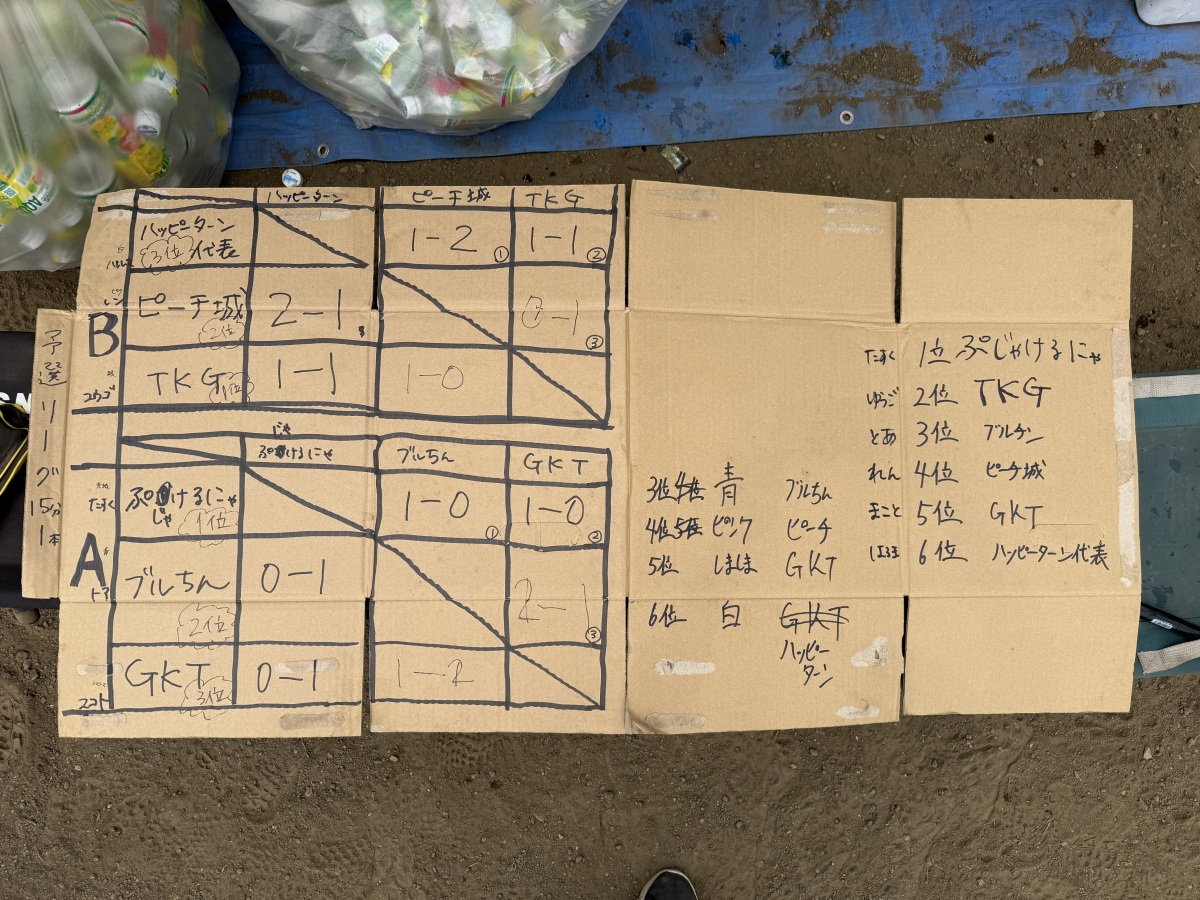 ハッピーターン ピーチ城 TKG
ハッピーターン代表 3位 1-2 ① 1-1 ②
B ピーチ城 2位 2-1 0-1 ③
TKG 1位 1-1 1-0
予選リーグ15分1本
ぷじゃけるにゃ ブルちん GKT
たすく ぷじゃけるにゃ 1位 1-0 ① 1-0 ②
A ブルちん 2位 0-1 2-1 ③
GKT 3位 0-1 1-2
3位 青 ブルちん
4位 ピンク ピーチ
5位 しましま GKT
6位 白 GKT
ハッピー
ターン
たすく 1位 ぷじゃけるにゃ
2位 TKG
とあ 3位 ブルチン
れん 4位 ピーチ城
まこと 5位 GKT
6位 ハッピーターン代表